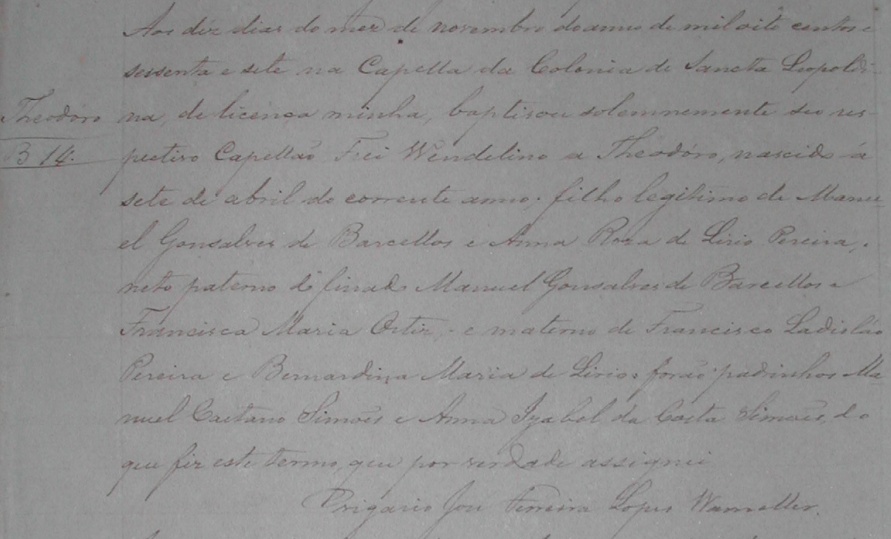 Aos dez dias do mez de novembro do anno de mil oito centos e
sessenta e sete na Capella da Colonia de Sancta Leopoldi-
Theodoro
na, de licença minha, baptisou solemnemente seo res-
B 14.
pectivo Capellão Frei Wendelino a Theodóro, nascido á
sete de abril do corrente anno; filho legitimo de Manu-
el Gonsalves de Barcellos e Anna Roza de Lirio Pereira,
neto paterno d finado Manuel Gonsalves de Barcellos e
Francisca Maria Ortiz, e materno de Francisco Ladislão
Pereira e Bernardina Maria de Lirio: forão padrinhos Ma-
nuel Caetano Simoẽs e Anna Izabel da Costa Simoẽs, do
que fiz este termo, que por verdade assignei
José Ferreira Lopes